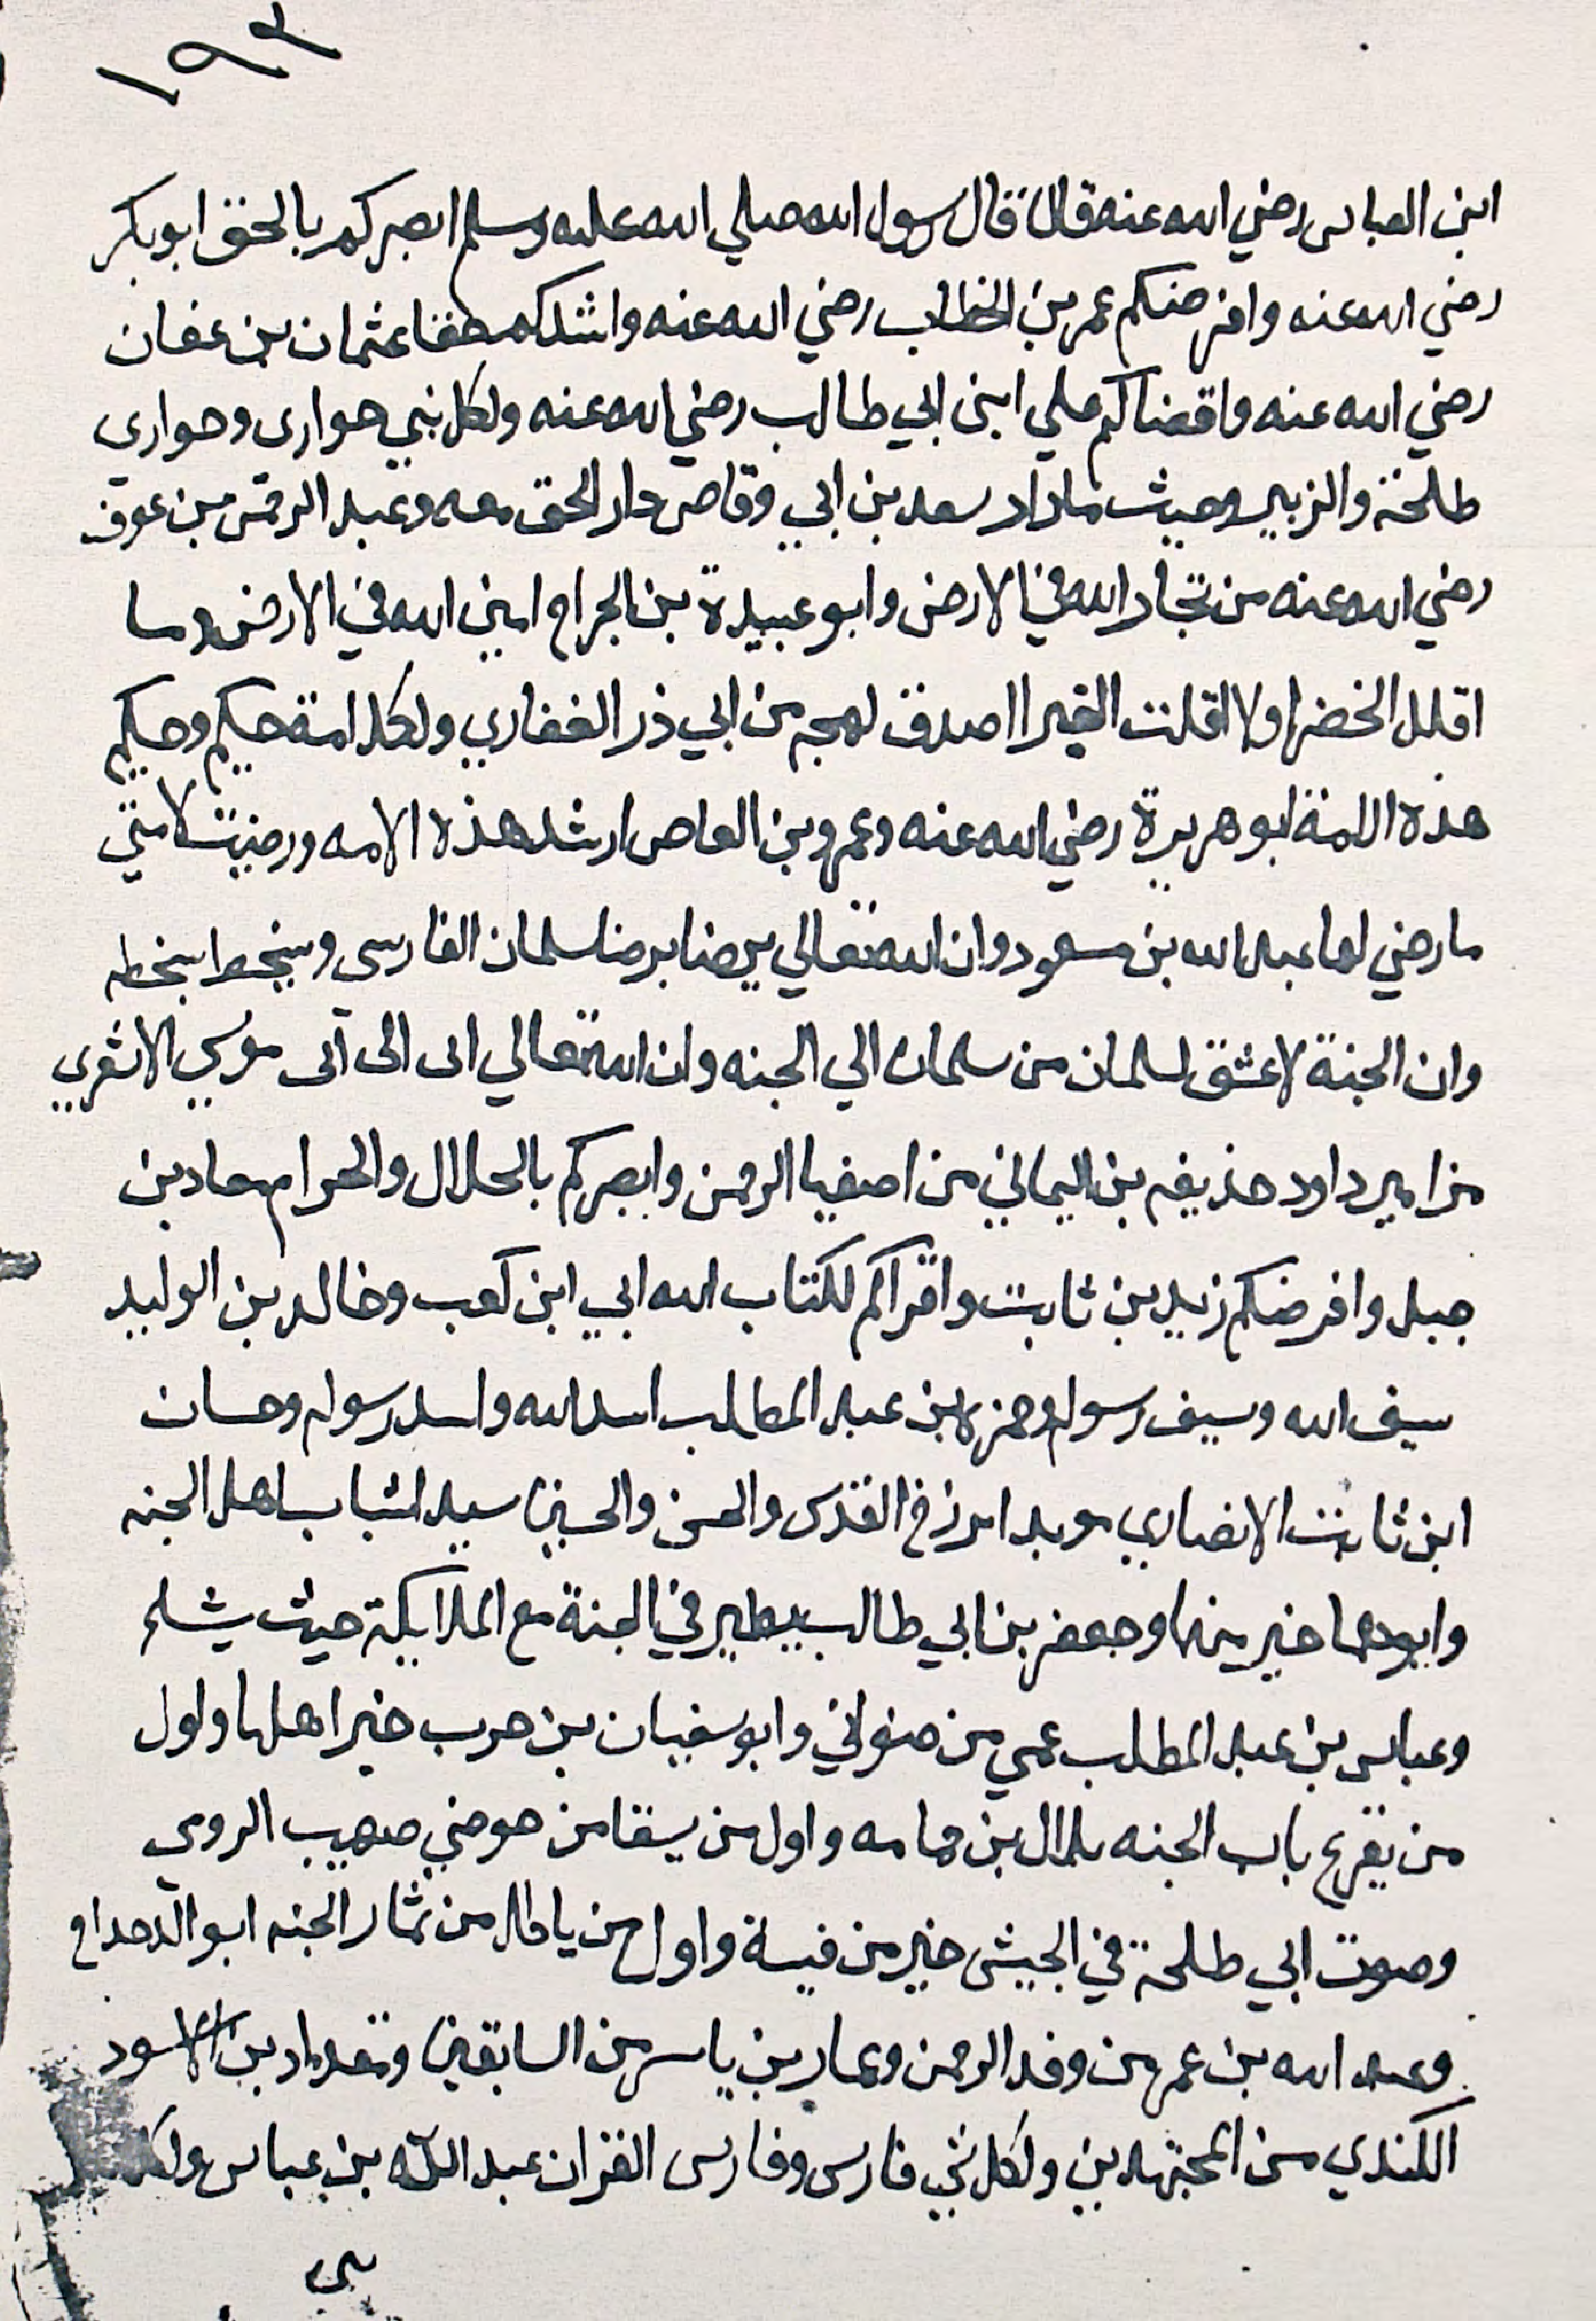 ١٩٣
ابن العباس رضي الله عنه قال قال رسول الله صلي الله عليه وسلم ابصركم بالحق ابو بكر
رضي الله عنه وافرضكم عمر بن الخطاب رضي الله عنه واشدكم عثمان بن عفان
رضي الله عنه واقضاكم علي ابن ابي طالب رضي الله عنه ولكل نبي حواري وحواري
طلحة والزبير وحيث ما دار سعد بن ابي وقاص دار الحق معه وعبد الرحمن بن عوف
رضي الله عنه من تجار الله في الارض وابو عبيدة بن الجراح امين الله في الارض وما
اقلل الخضرا ولا اقلت الغبرا اصدق لهجه من ابي ذر الغفاري ولكل امة حكيم وحكيم
هذه الامة ابو هريرة رضي الله عنه وعمرو بن العاص ارشد هذه الامه ورضيت لامتي
ما رضي لها عبد الله بن مسعود وان الله تعالي يرضا برضا سلمان الفارسي ويسخط بسخطه
وان الجنة لاعشق لسلمان من سلمان الي الجنه وان الله تعالي اتى الى ابى موسي الاشعري
مزامير داود حذيفه بن اليماني من اصفيا الرحمن وابصركم بالحلال والحرام معاد بن
جبل وافرضكم زيد بن ثابت واقراكم لكتاب الله ابي ابن كعب وخالد بن الوليد
سيف الله وسيف رسوله وحمزه بن عبد المطلب اسد الله واسد رسوله وحسان
ابن ثابت الانصاري مويد القدس والحسن والحسين سيدا شباب اهل الجنه
وابوهما خير منهما وجعفر بن ابي طالب يطير في الجنة مع الملايكة حيث يشاء
وعباس بن عبد المطلب عمي من صنواني وابو سفيان بن حرب خير اهلها واول
من يقرع باب الجنه بلال بن حمامه واول من يسقا من حوضي صهيب الرومي
وصوت ابي طلحة في الجيش خير من فيئة واول من ياكل من ثمار الجنه ابو الدحداح
وعبد الله بن عمر من وفد الرحمن وعمار بن ياسر من السابقين ومقداد بن الاسود
الكندي من المجتهدين ولكل نبي فارس وفارس القران عبد الله بن عباس ولكل